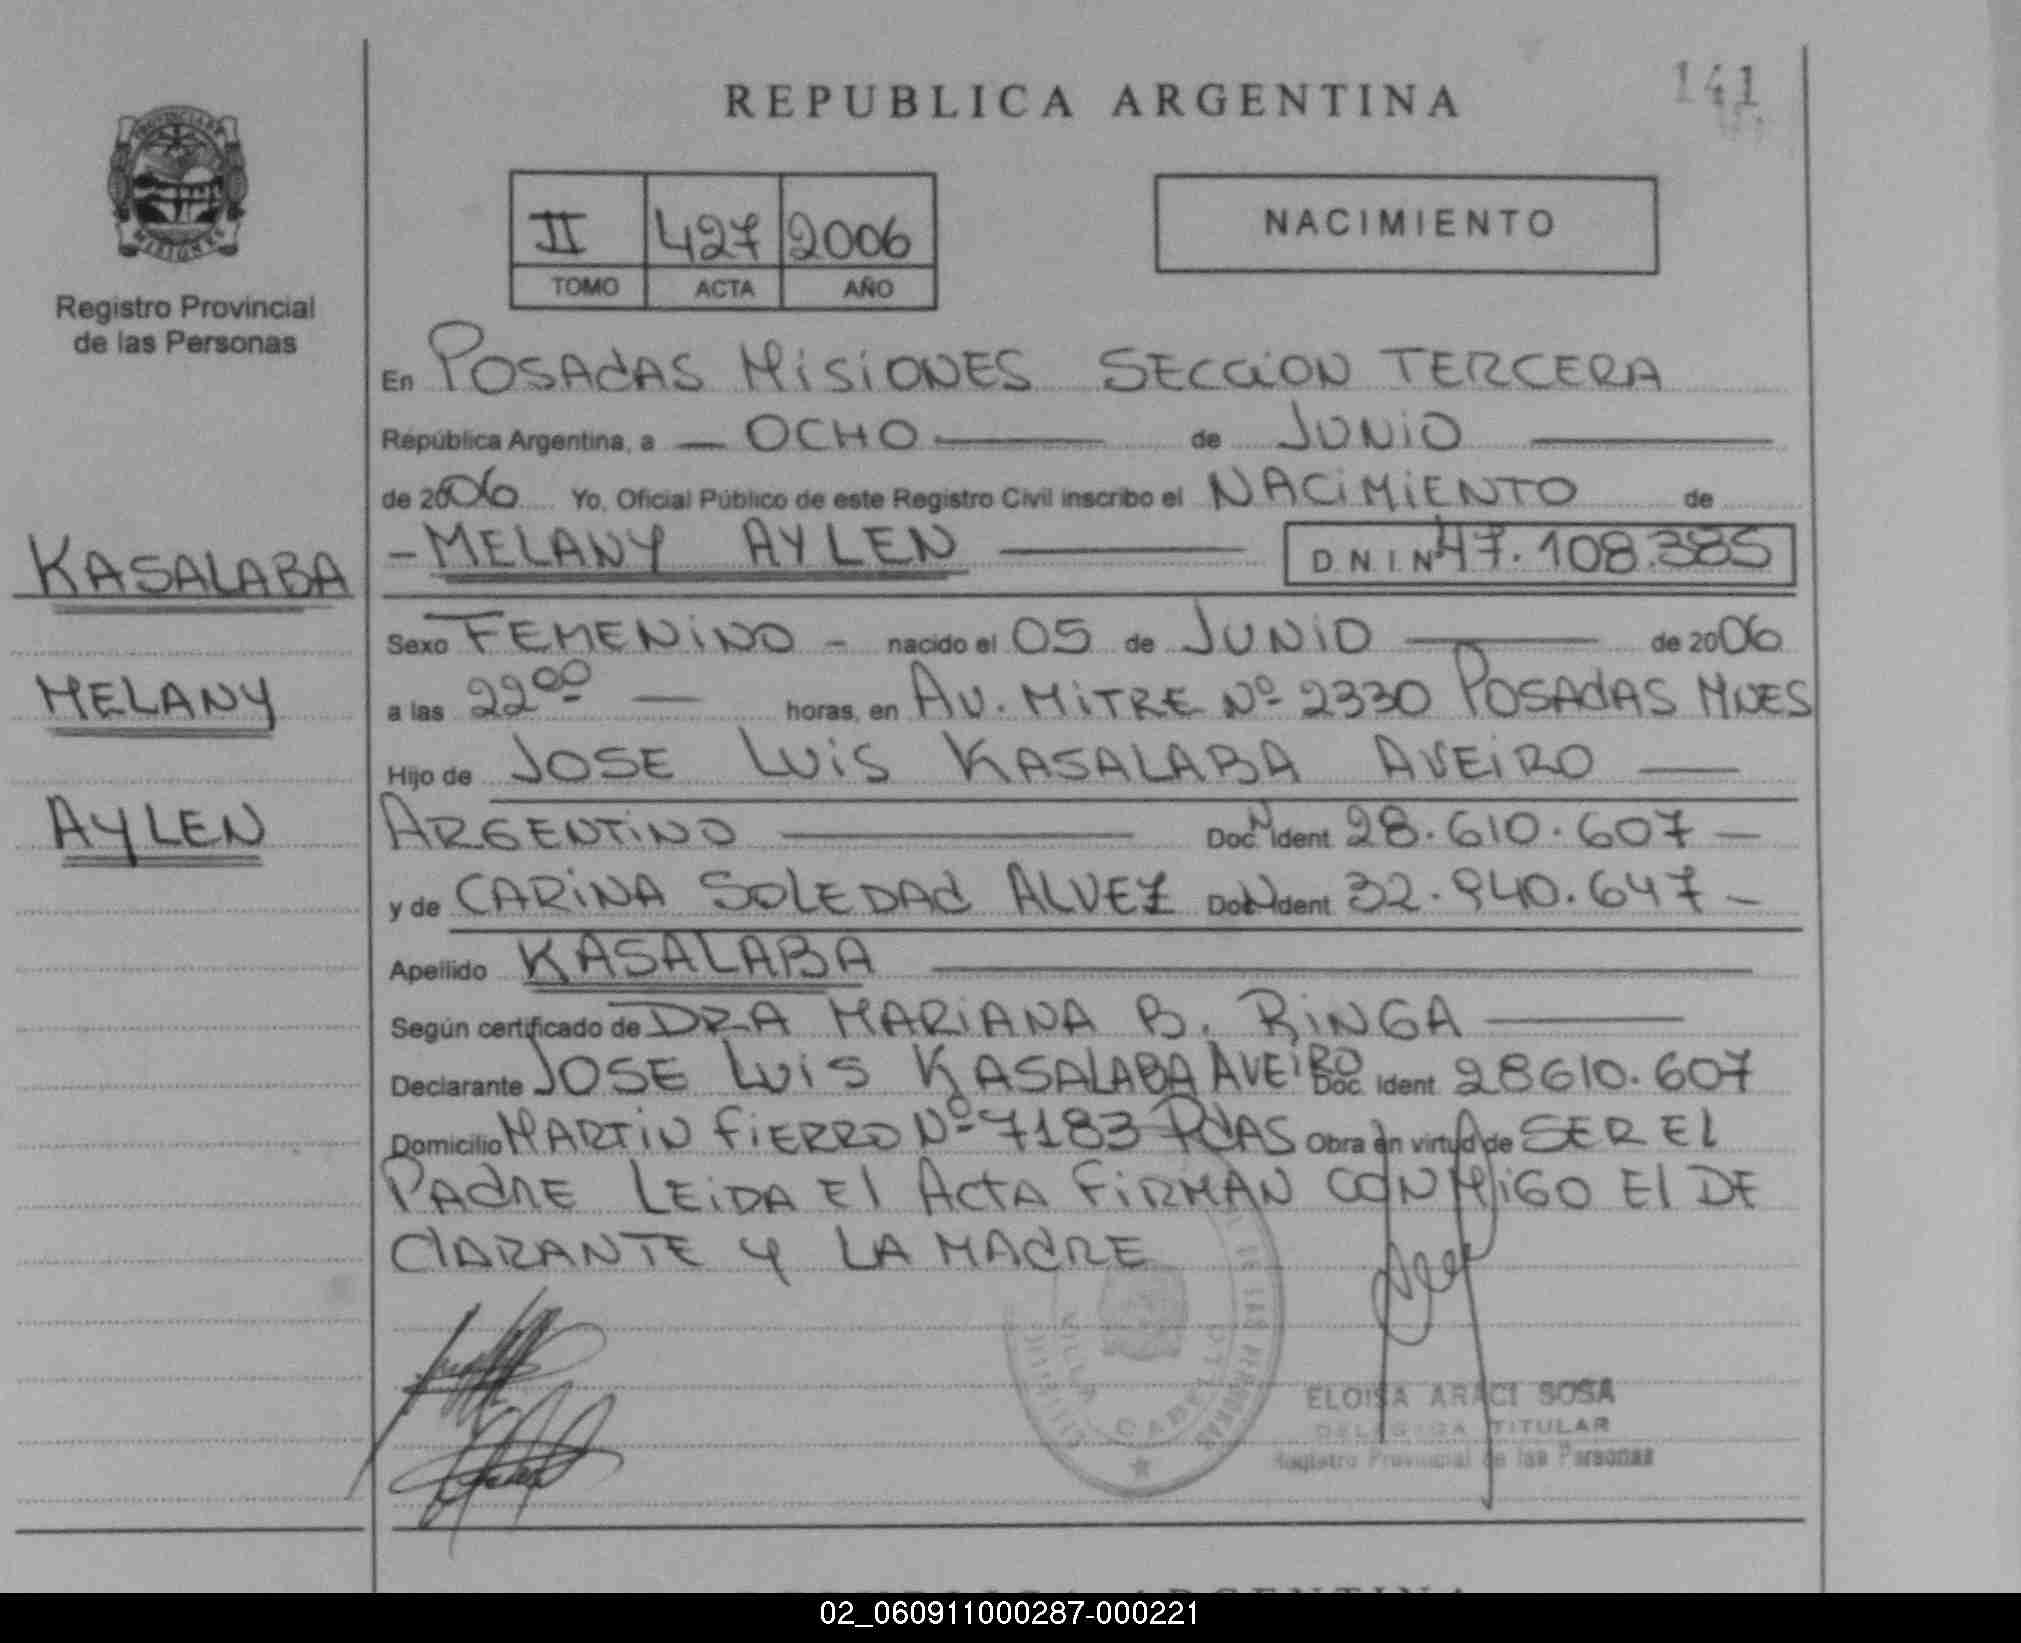 141
REPUBLICA ARGENTINA
PROVINCIA DE
MISIONES
Registro Provincial
de las Personas
II 427 2006
TOMO ACTA AÑO
NACIMIENTO
En POSAdAS MiSiONES SECCiON TERCERA
República Argentina, a — OCHO — de JUNiO —
de 2006 Yo, Oficial Público de este Registro Civil inscribo el NACiMiENTO de
KASALABA
- MELANY AYLEN — D.N.I.Nº 47.108.385
Sexo FEMENiNO - nacido el 05 de JUNiO — de 2006
MELANY
a las 22 00 — horas, en AV. MiTRE Nº 2330 POSAdAS MNES
Hijo de JOSE LUiS KASALABA AVEiRO —
AYLEN
ARGENTiNO — Doc. N Ident 28.610.607 —
y de CARiNA SOLEDAd ALVEZ Doc. N Ident 32.940.647 -
Apellido KASALABA —
Según certificado de DRA MARiANA B. RiNGA —
Declarante JOSE LUiS KASALABA AVEiRO Doc. Ident. 28610.607
Domicilio MARTiN FiERRO Nº 7183 PdAS Obra en virtud de SER El
PAdRE LEiDA El ACTA FiRMAN CONMiGO El DE
ClARANTE Y LA MAdRE
DE LAS PERSONAS
VILLA CABELLO
ELOISA ARACI SOSA
DELEGADA TITULAR
Registro Provincial de las Personas
REPUBLICA ARGENTINA
02_060911000287-000221